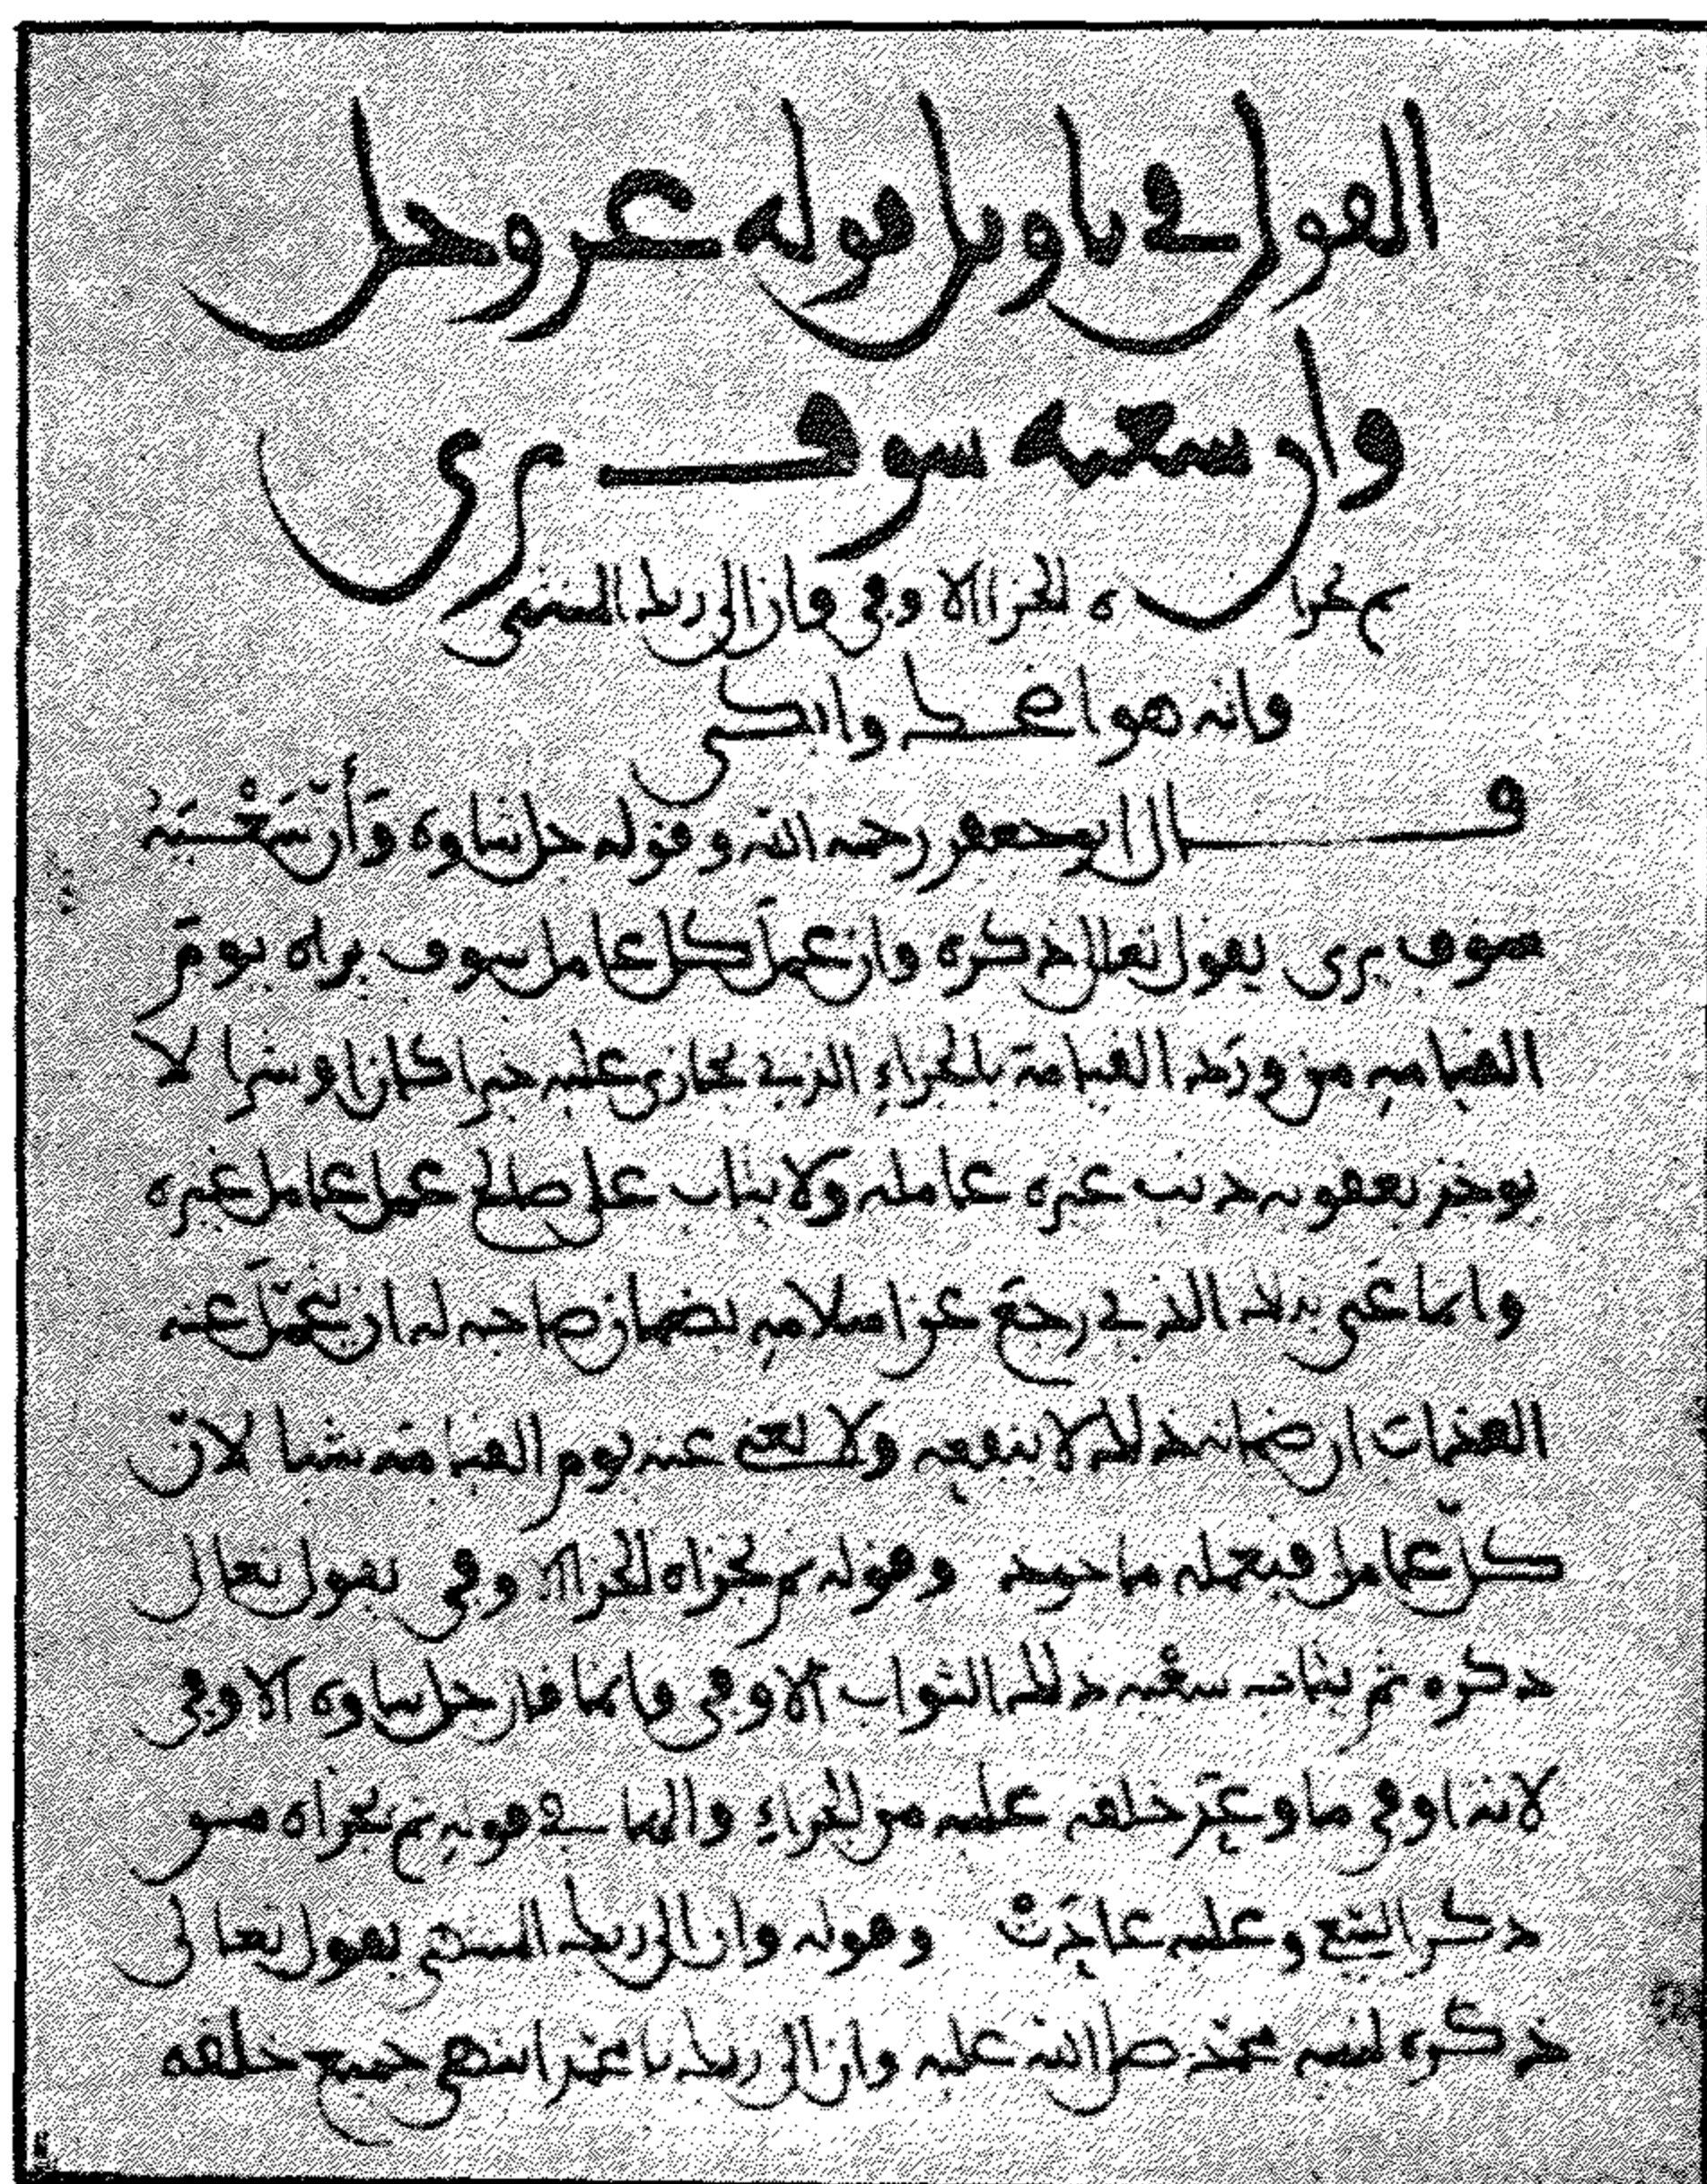 القول في تاويل قوله عز وجل
وان سعيه سوف يرى
ثم يجزاه الجزا الاوفى وان الى ربك المنتهى
وانه هو اضحك وابكى
قال ابو جعفر رحمه الله وقوله جل ثناوه وَأَنَّ سَعْيَهُ
سوف يرى يقول تعالى ذكره وان عمل كل عامل سوف يراه يوم
القيامه من ورد القيامة بالجزاء الذي يجازى عليه خيرا كان او شرا لا
يوخذ بعقوبه ذنب غيره عامله ولا يثاب على صالح عمل عامل غيره
وانما عنى بذلك الذي رجع عن اسلامه بضمان صاحبه له ان يتحمل عنه
العذاب ان ضمانه ذلك لا ينفعه ولا يغني عنه يوم القيامة شيا لان
كل عامل فبعمله ماخوذ وقوله ثم يجزاه الجزا الاوفى يقول تعالى
ذكره ثم يثاب بسعيه ذلك الثواب الاوفى وانما قال جل ثناوه الاوفى
لانه اوفى ما وعد خلقه عليه من الجزاء والها في قوله ثم يجزاه من
ذكر السعي وعليه عادت وقوله وان الى ربك المنتهى يقول تعالى
ذكره لنبيه محمد صلى الله عليه وان الى ربك يا محمد انتهى جميع خلقه